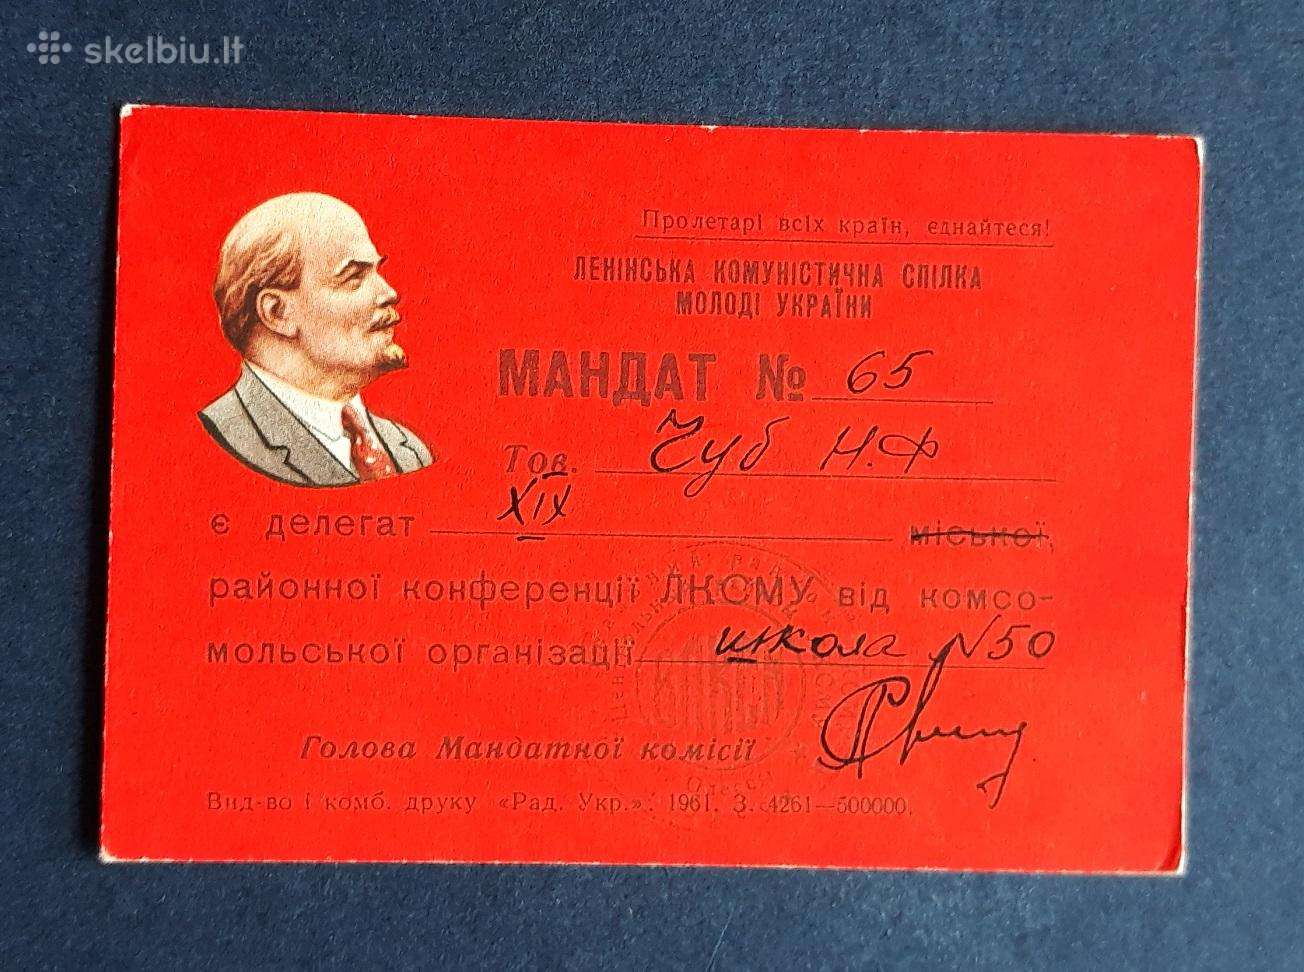 skelbiu.lt
Пролетарі всіх країн, єднайтеся!
ЛЕНІНСЬКА КОМУНІСТИЧНА СПІЛКА
МОЛОДІ УКРАЇНИ
МАНДАТ № 65
Тов. Чуб Н.Ф
є делегат XIX міської,
районної конференції ЛКСМУ від комсо-
мольської організації школа N50
Голова Мандатної комісії
Вид-во і комб. друку «Рад. Укр.». 1961. З. 4261—500000.